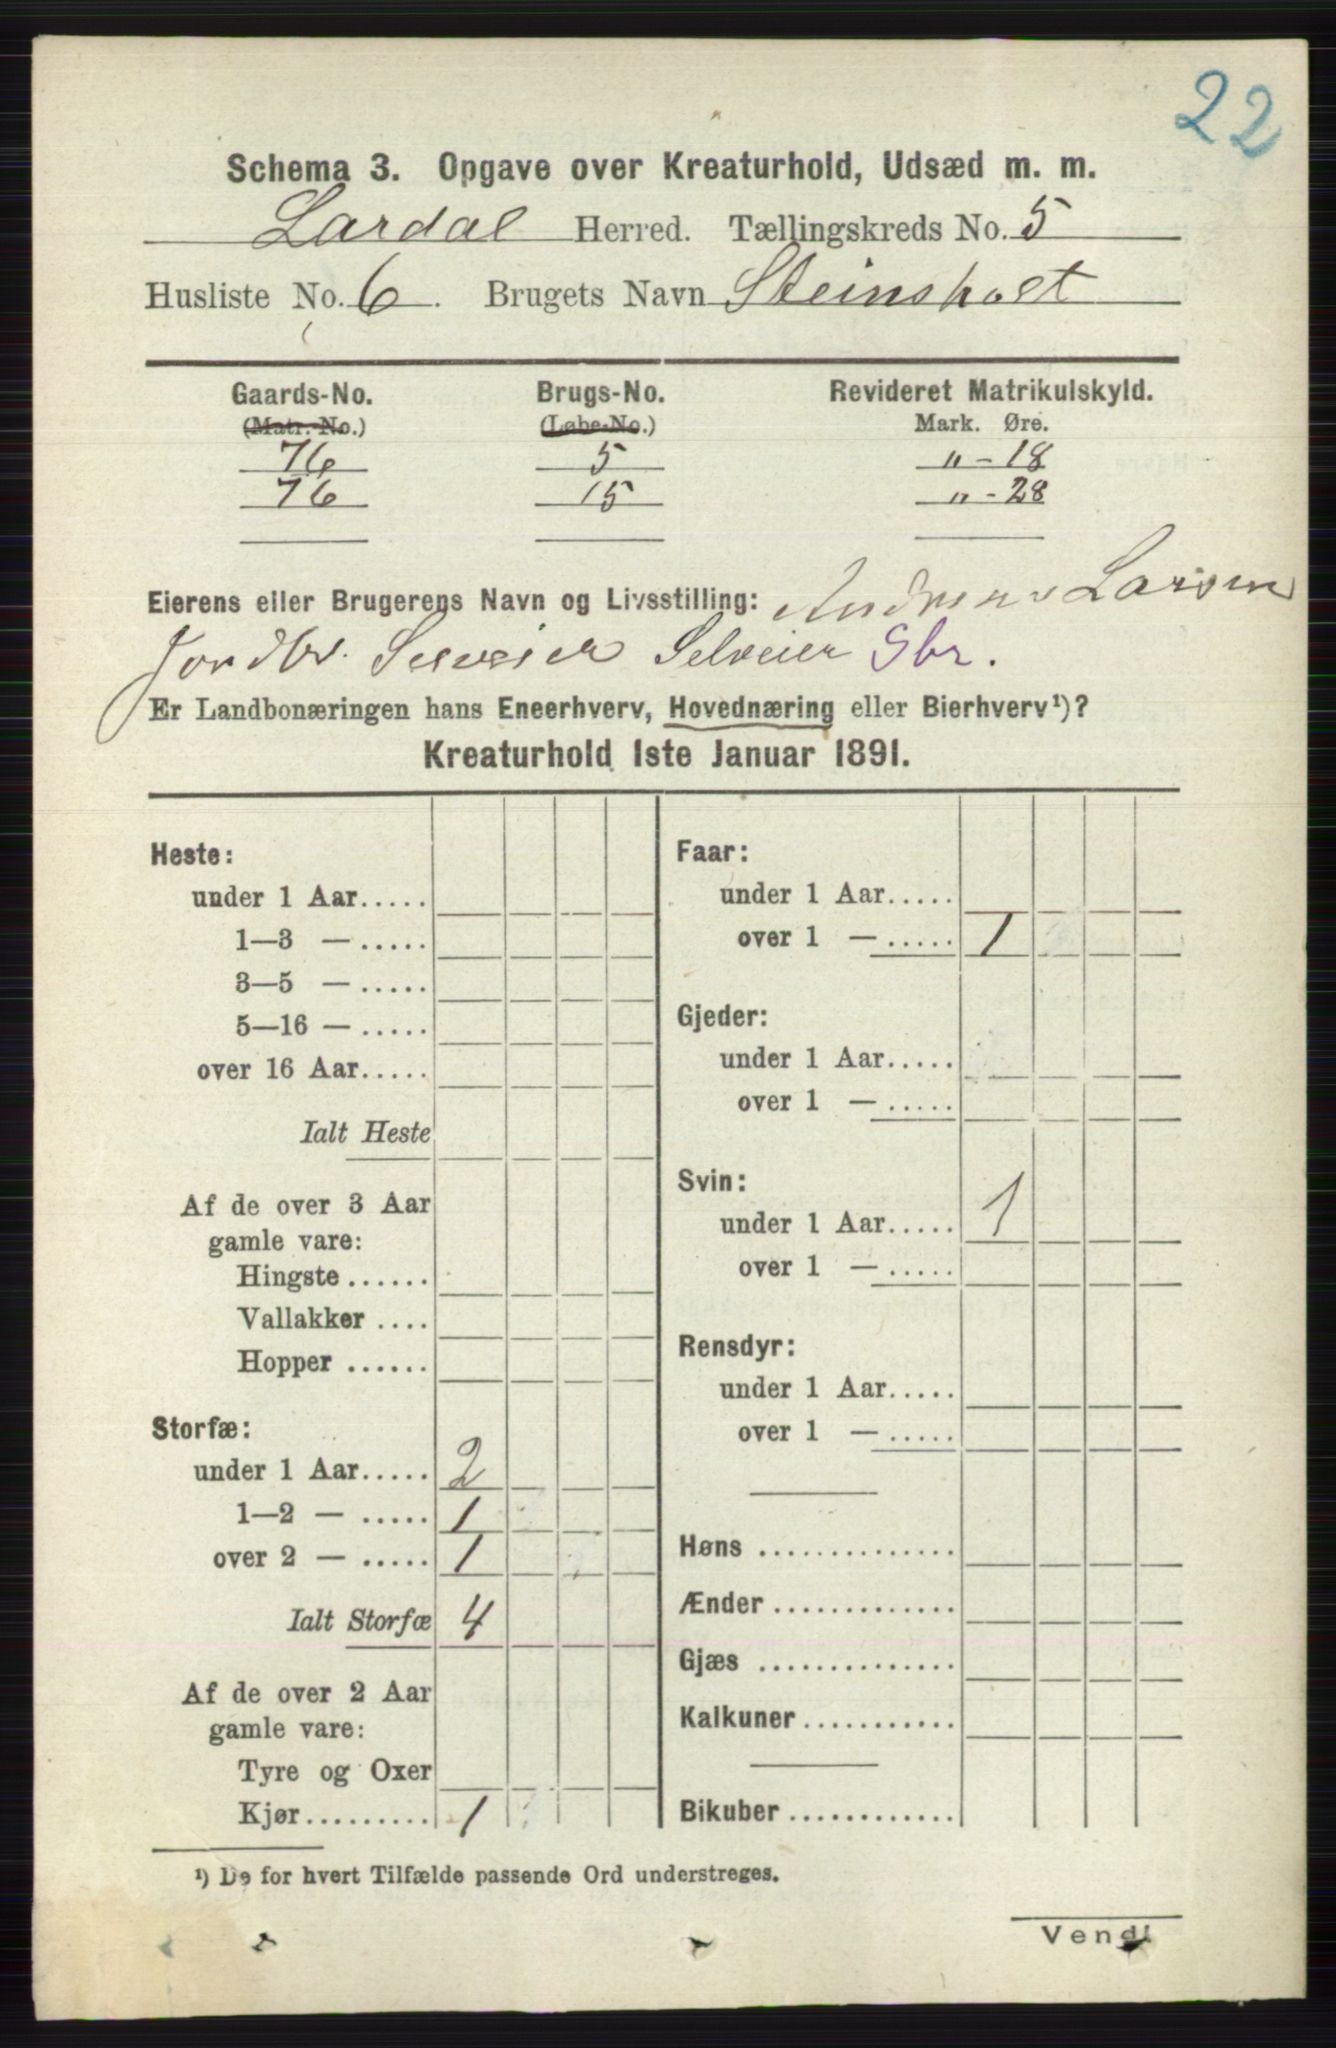 22
Schema 3. Opgave over Kreaturhold, Udsæd m. m.
Lardal Herred. Tællingskreds No. 5
Husliste No. 6. Brugets Navn Steinsholt
Gaards-No. Brugs-No. Revideret Matrikulskyld.
(Matr.-No.) (Løbe-No.) Mark. Øre.
76 5 " - 18
76 15 " - 28
Eierens eller Brugerens Navn og Livsstilling: Andreas Larsen
Jordbr. Selveier Selveier Gbr.
Er Landbonæringen hans Eneerhverv, Hovednæring eller Bierhverv¹)?
Kreaturhold 1ste Januar 1891.
Heste:
under 1 Aar.....
1—3 — .....
3—5 — .....
5—16 — .....
over 16 Aar.....
Ialt Heste
Af de over 3 Aar
gamle vare:
Hingste ......
Vallakker ....
Hopper ......
Storfæ:
under 1 Aar..... 2
1—2 — ..... 1
over 2 — ..... 1
Ialt Storfæ 4
Af de over 2 Aar
gamle vare:
Tyre og Oxer
Kjør......... 1
Faar:
under 1 Aar.....
over 1 — ..... 1
Gjeder:
under 1 Aar.....
over 1 — .....
Svin:
under 1 Aar..... 1
over 1 — .....
Rensdyr:
under 1 Aar.....
over 1 — .....
Høns ..............
Ænder .............
Gjæs ..............
Kalkuner...........
Bikuber ............
¹) De for hvert Tilfælde passende Ord understreges.
Vend!